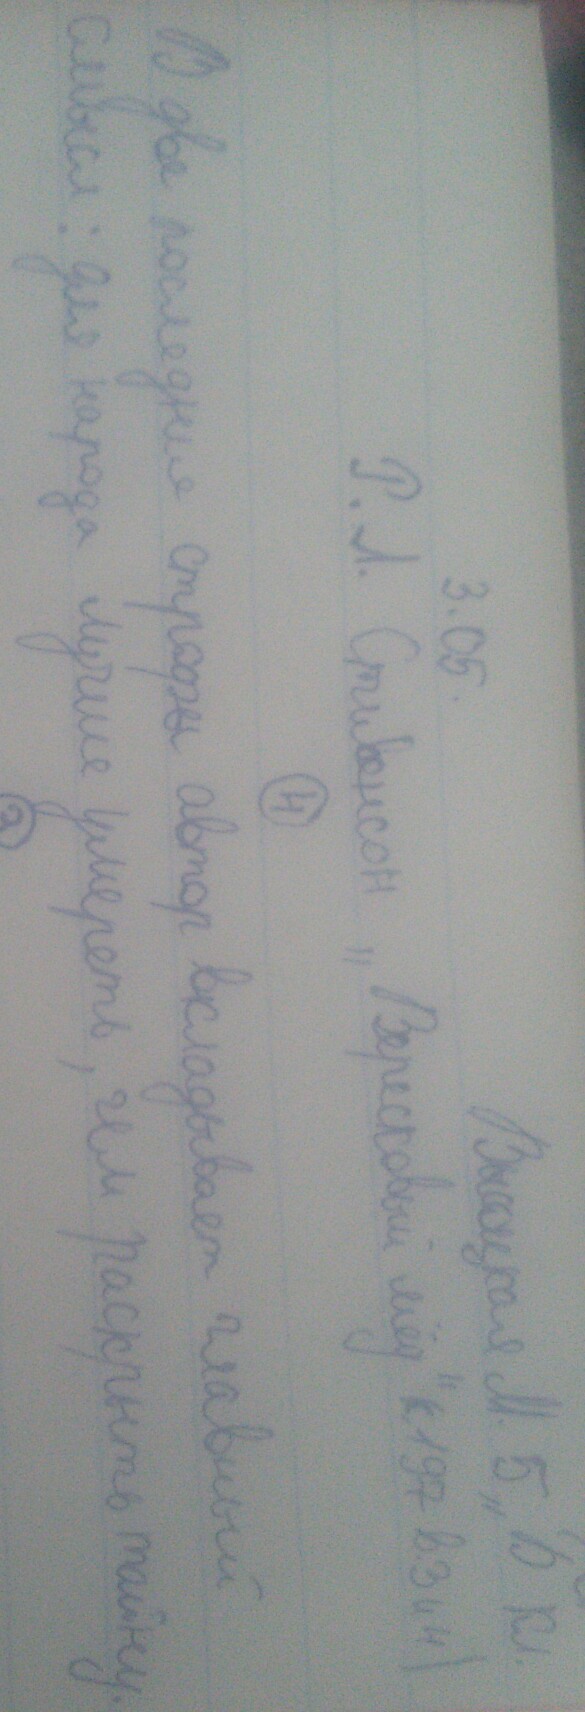 Высоцкая М. 5 „Б кл.
3.05.
Р. Л. Стивенсон „Вересковый мёд" с 197 в.3 и 4
④
В две последние строфы автор вкладывает главный
смысл: для народа лучше умереть, чем раскрыть тайну.
③